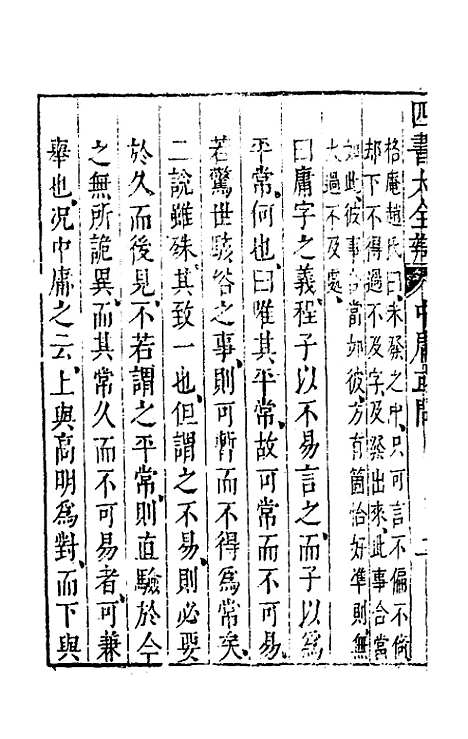 四書大全辯 中庸或問 二
格庵趙氏曰未發之中只可言不偏不倚
却下不得過不及字及發出來此事合當
如此彼事合當如彼方有箇恰好準則無
大過不及處
曰庸字之義程子以不易言之而子以爲
平常何也曰唯其平常故可常而不可易
若驚世駭俗之事則可暫而不得爲常矣
二說雖殊其致一也但謂之不易則必要
於久而後見不若謂之平常則直驗於今
之無所詭異而其常久而不可易者可兼
舉也况中庸之云上與高明爲對而下與